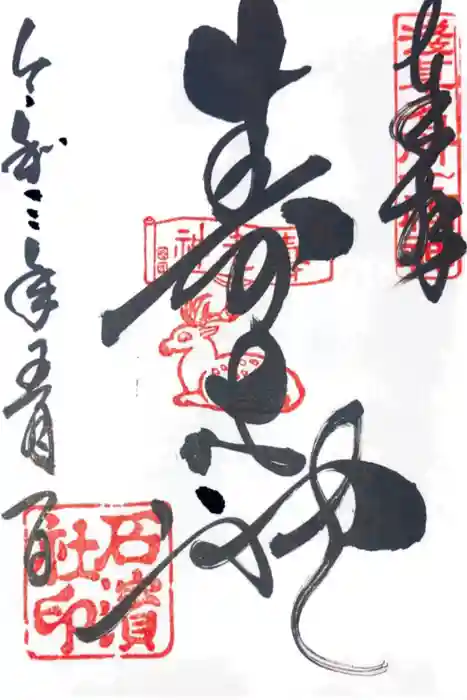 奉拝
寿老神
壽老神
令和三年五月一日
石濱
社印